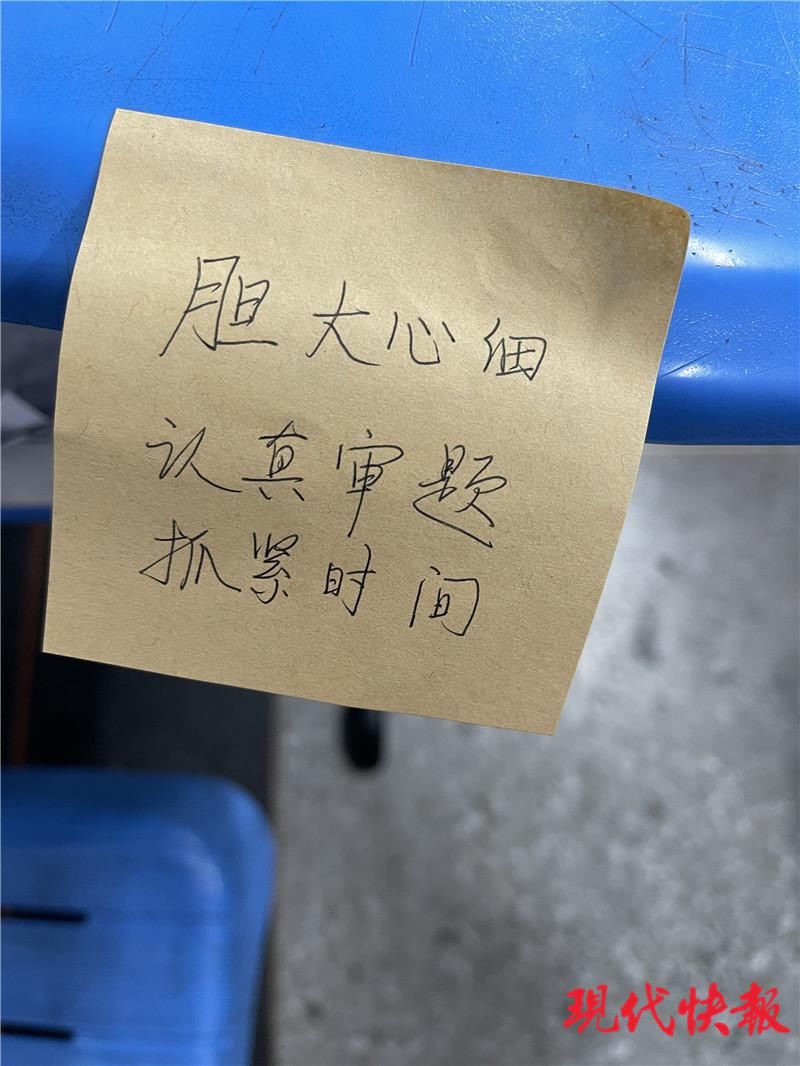 胆大心细
认真审题
抓紧时间
現代快報